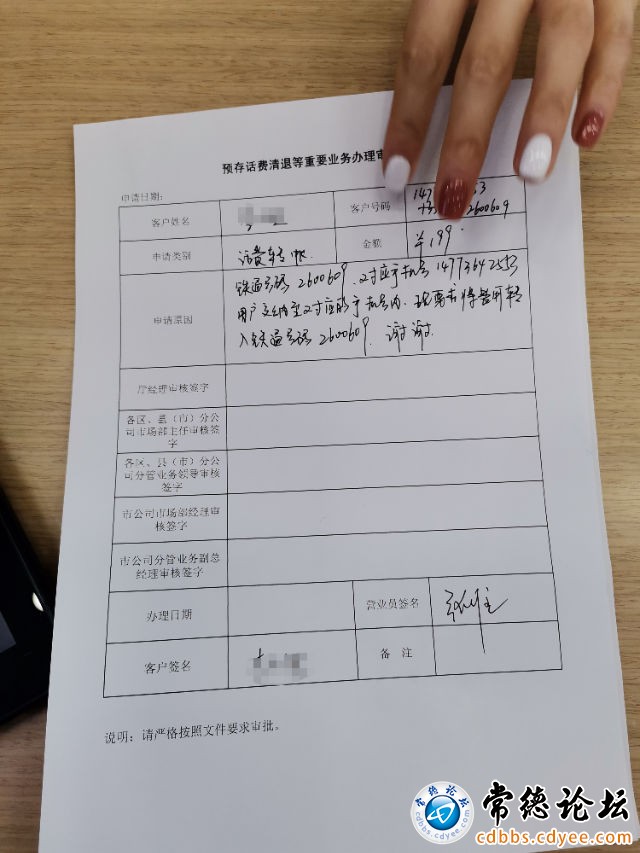 预存话费清退等重要业务办理审
申请日期:
客户姓名
客户号码
2600609
申请类别
话费转帐
金额
¥199
申请原因
铁通号码2600609,对应手机号14773642553
用户交纳至对应的手机号内,现要求将费用转
入铁通号码2600609,谢谢
厅经理审核签字
各区、县(市)分公
司市场部主任审核签
字
各区、县(市)分公
司分管业务领导审核
签字
市公司市场部经理审
核签字
市公司分管业务副总
经理审核签字
办理日期
营业员签名
客户签名
备 注
说明:请严格按照文件要求审批。
常德论坛
cdbbs.cdyee.com